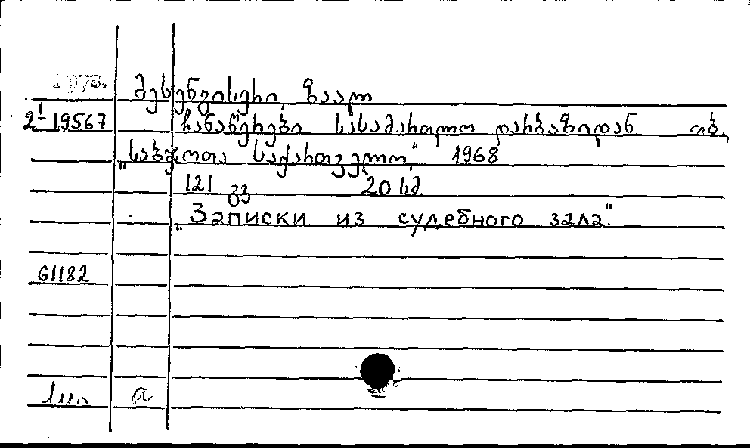 მესენგისერი ზაალ
2-19567 ჩანაწერები სასამართლო დარბაზიდან თბ.
„საბჭოთა საქართველო“, 1968
121 გვ 20 სმ
„Записки из судебного зала“.
61182